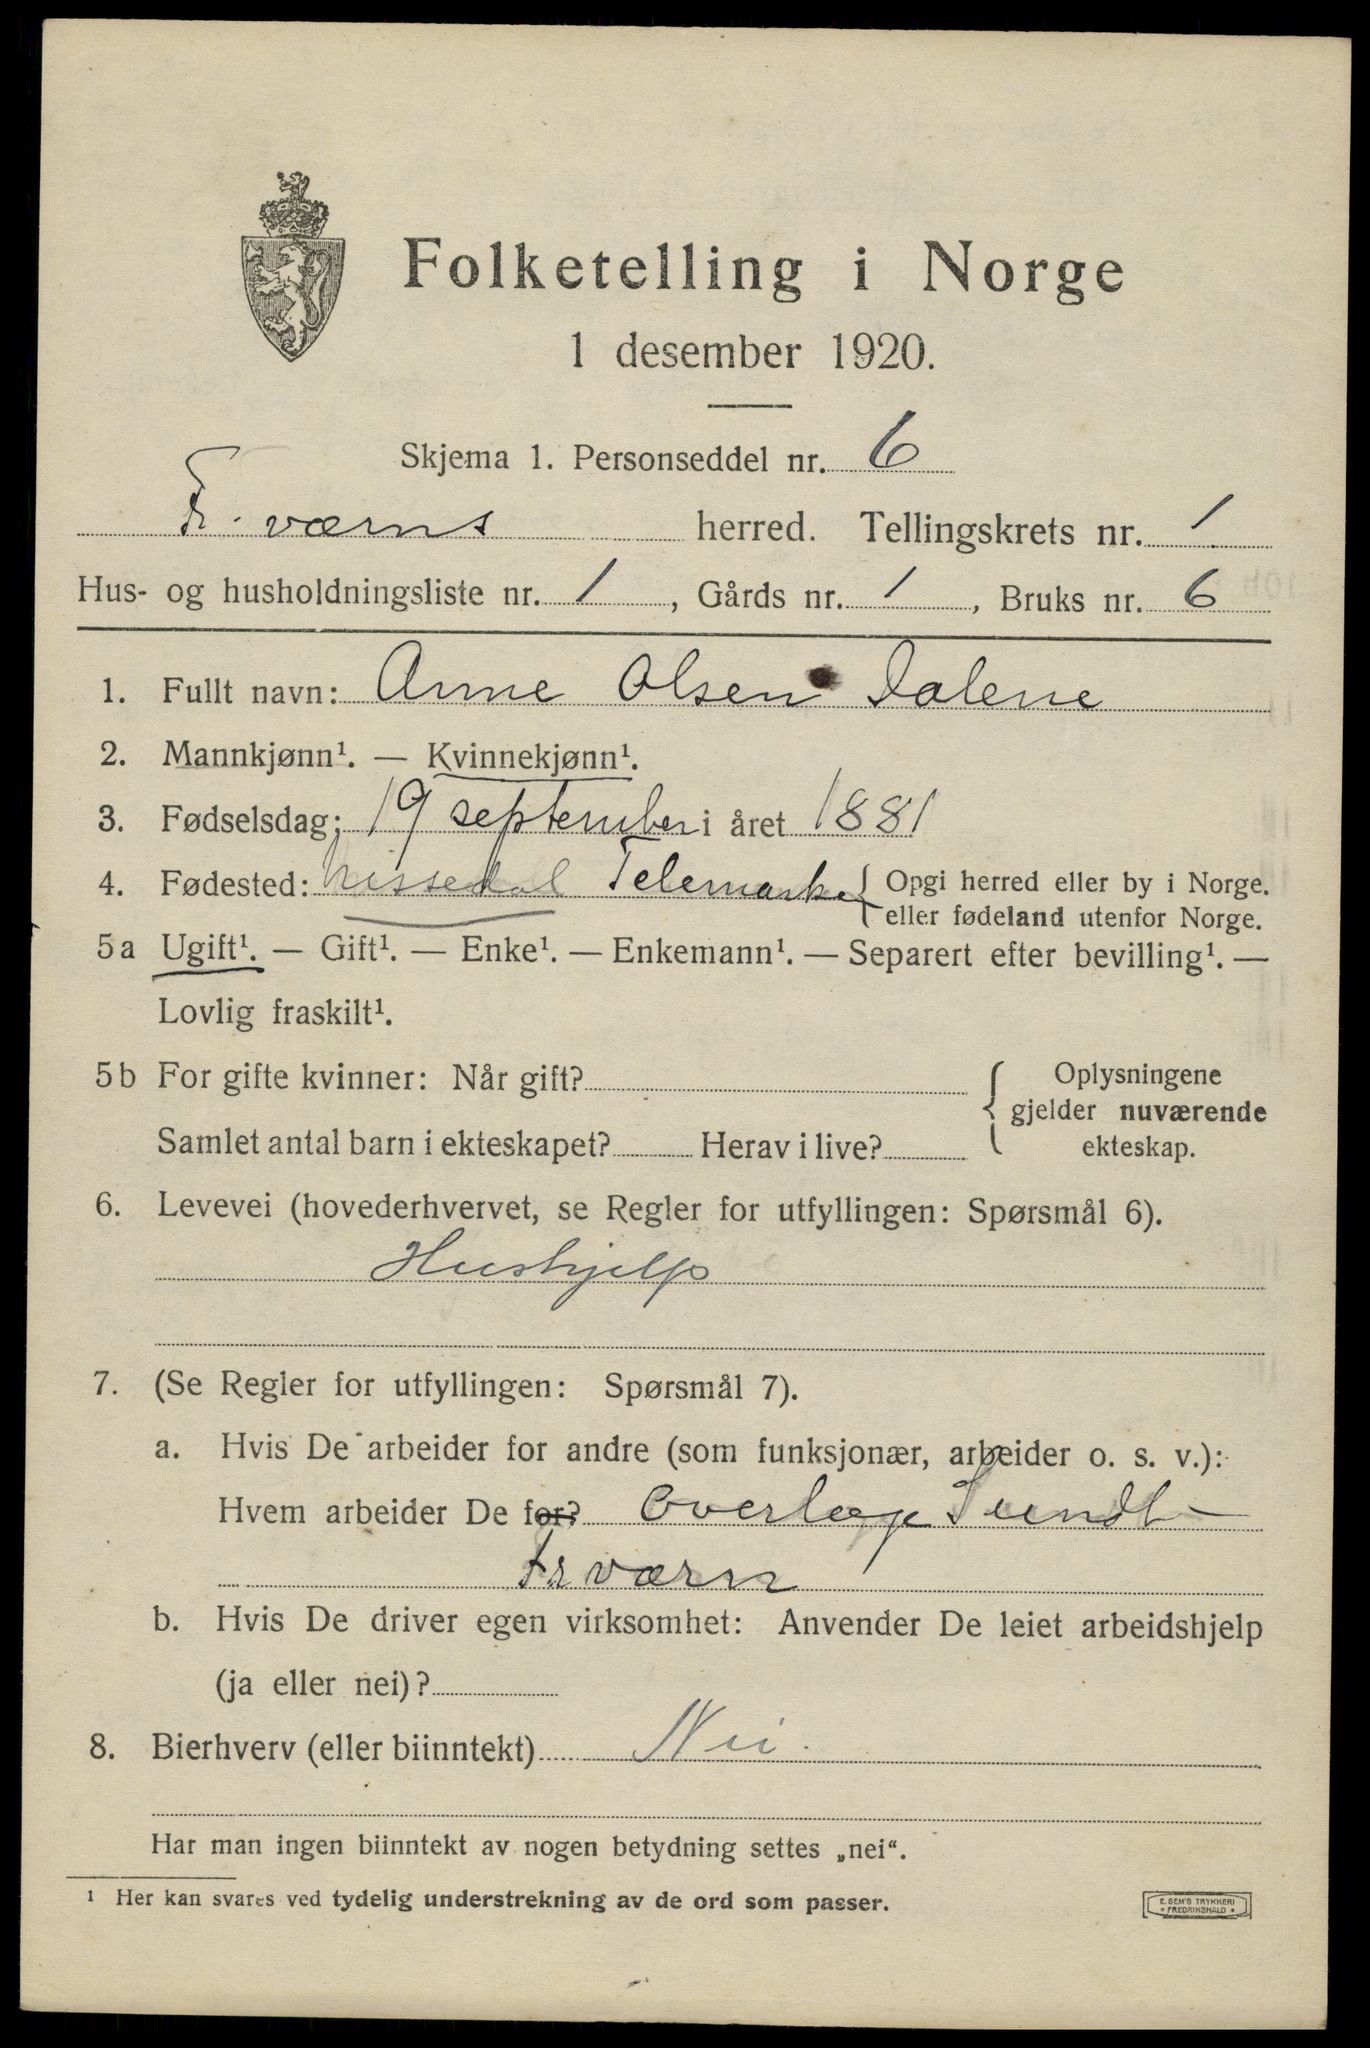 Folketelling i Norge
1 desember 1920.
Skjema 1. Personseddel nr. 6
Fr. værns herred. Tellingskrets nr. 1
Hus- og husholdningsliste nr. 1, Gårds nr. 1, Bruks nr. 6
1. Fullt navn: Anne Olsen Dalene
2. Mannkjønn¹. — Kvinnekjønn¹.
3. Fødselsdag: 19 september i året 1881
4. Fødested: Nissedal Telemarken { Opgi herred eller by i Norge.
eller fødeland utenfor Norge.
5a Ugift¹. — Gift¹. — Enke¹. — Enkemann¹. — Separert efter bevilling¹. —
Lovlig fraskilt¹.
5b For gifte kvinner: Når gift?
Samlet antal barn i ekteskapet? Herav i live?
{ Oplysningene
gjelder nuværende
ekteskap.
6. Levevei (hovederhvervet, se Regler for utfyllingen: Spørsmål 6).
Hushjelp
7. (Se Regler for utfyllingen: Spørsmål 7).
a. Hvis De arbeider for andre (som funksjonær, arbeider o. s. v.):
Hvem arbeider De for? Overlæge Sundt
Fr værn
b. Hvis De driver egen virksomhet: Anvender De leiet arbeidshjelp
(ja eller nei)?
8. Bierhverv (eller biinntekt) Nei.
Har man ingen biinntekt av nogen betydning settes „nei“.
¹ Her kan svares ved tydelig understrekning av de ord som passer.
E. SEM'S TRYKKERI
* FREDRIKSHALD *